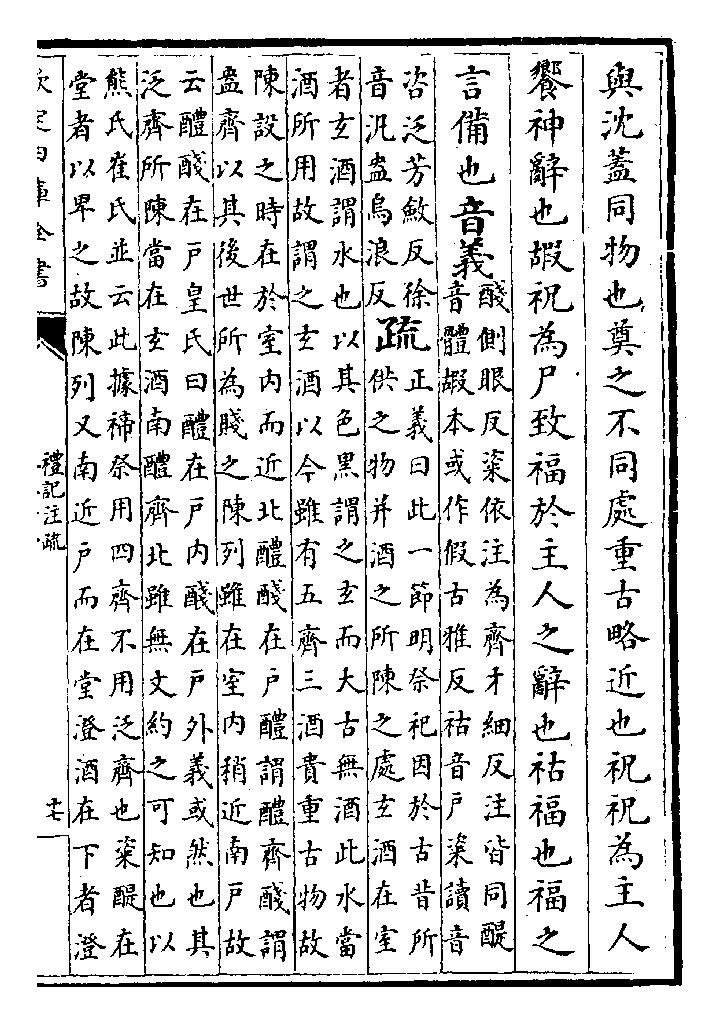 與沈蓋同物也奠之不同處重古略近也祝祝為主人
饗神辭也嘏祝為尸致福於主人之辭也祜福也福之
言備也音義
醆側眼反粢依注為齊才細反注皆同醍
音體嘏本或作假古雅反祜音戶粢讀音
咨泛芳斂反徐
音汎盎烏浪反
疏
正義曰此一節明祭祀因於古昔所
供之物并酒之所陳之處玄酒在室
者玄酒謂水也以其色黑謂之玄而大古無酒此水當
酒所用故謂之玄酒以今雖有五齊三酒貴重古物故
陳設之時在於室内而近北醴醆在戶醴謂醴齊醆謂
盎齊以其後世所為賤之陳列雖在室内稍近南戶故
云醴醆在戶皇氏曰醴在戶内醆在戶外義或然也其
泛齊所陳當在玄酒南醴齊北雖無文約之可知也以
熊氏崔氏並云此據禘祭用四齊不用泛齊也粢醍在
堂者以卑之故陳列又南近戶而在堂澄酒在下者澄
欽定四庫全書
禮記注疏
十七